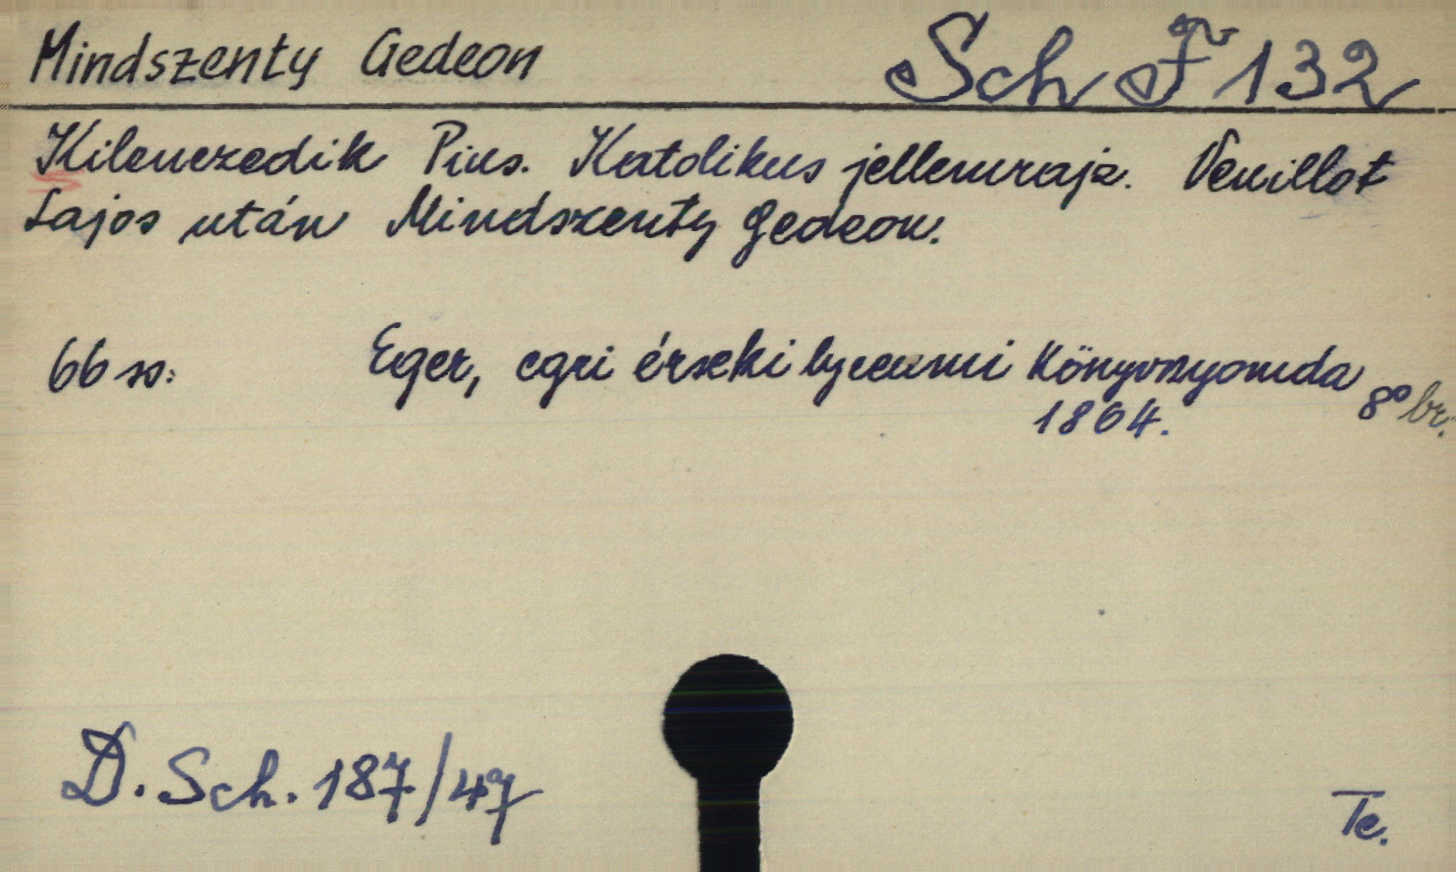 Mindszenty Gedeon
Sch F 132
Kilenczedik Pius. Katolikus jellemraja. Veuillot
Lajos után Mindszenty Gedeon.
66 ss:
Eger, egri érseki lyceumi Könyvnyomda
1864.
8° br.
D. Sch. 187/47
Te.